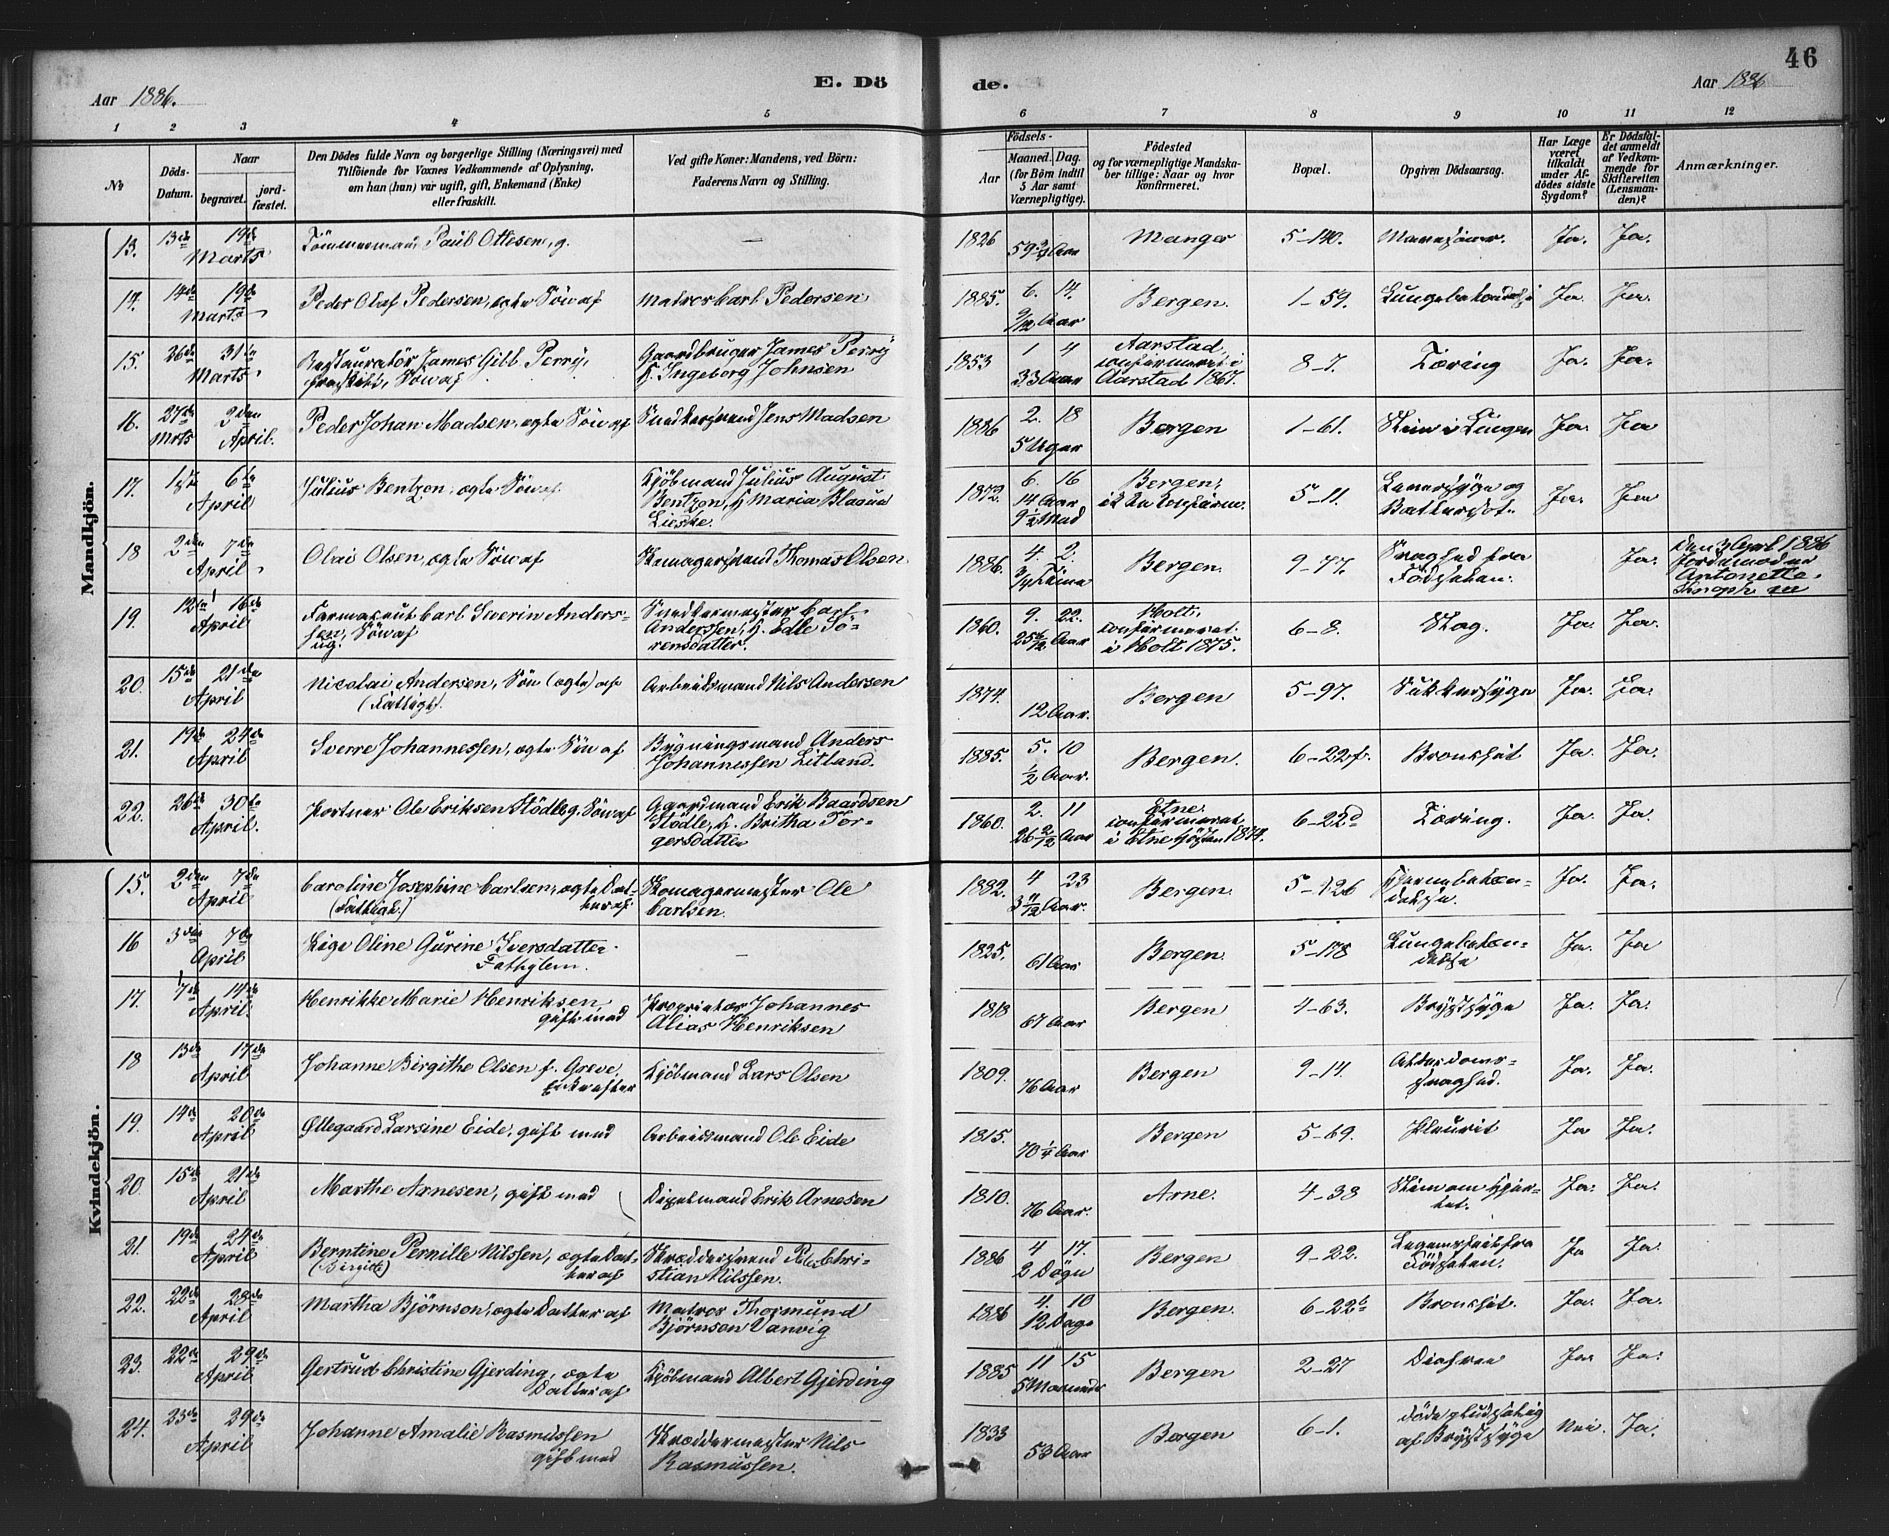 46
Aar 1886.
E. Dö
de.
Aar 1886
1 2 3 4 5
6 7 8 9 10 11 12
No
Döds-Datum.
Naar
begravet.
jord-fæstet.
Den Dödes fulde Navn og borgerlige Stilling (Næringsvei) med
Tilföiende for Voxnes Vedkommende af Oplysning,
om han (hun) var ugift, gift, Enkemand (Enke)
eller fraskilt.
Ved gifte Koner: Mandens, ved Börn:
Faderens Navn og Stilling.
Födsels-
Aar
Maaned. Dag.
(for Börn indtil
5 Aar samt
Værnepligtige).
Födested
og for værnepligtige Mandska-
ber tillige: Naar og hvor
konfirmeret.
Bopæl.
Opgiven Dödsaarsag.
Har Læge
været
tilkaldt
under Af-
dödes sidste
Sygdom?
Er Dödsfal-
det anmeldt
af Vedkom-
mende for
Skifteretten
(Lensman-
den)?
Anmærkninger.
Mandkjön.
13. 13de 19de Marts Tömmermand Paul Ottesen, g. — 1826 59 3/4 Aar Manger 5-140. Ja. Ja.
14. 14de 19de Marts Peder Olaf Pedersen, ægte Sön af Matros Carl Pedersen 1885. 6. 14. 9/12 Aar Bergen. 1-59. Ja. Ja.
15. 26de 31te Marts Restauratör James Gibb Perry, fraskilt, Sön af Gaardbruger James Perry H. Ingeborg Johnsen 1853 1 4 33 Aar Aarstad confirmeret i Aarstad 1867. 8-7. Tæring Ja. Ja.
16. 27de Mrts 3die April. Peder Johan Madsen, ægte Sön af Snedkersvend Jens Madsen 1886 2. 18 5 Uger Bergen 1-61. Slim i Lungen Ja. Ja
17. 1ste 6te April Julius Bentzon, ægte Sön af Kjöbmand Julius August Bentzon, H. Maria 1872. 6. 16 14 Aar 9 1/2 Mnd Bergen, ikke confirm. 5-11. Leversyge og Vattersot. Ja. Ja
18 2den 7de April Olai Olsen, ægte Sön af Skomagersvend Thomas Olsen 1886. 4. 2. 3/4 Time Bergen. 9-77. Svaghed fra Födselen. Ja. Den 3 April 1886 Jordemoder Antonette
19. 12te 16de April Farmaceut Carl Severin Anders-sen, ug. Sön af Snedkermester Carl Anderssen, H. Edle Sö-rensdatter. 1860. 9. 22. 25 6/12 Aar Holt. confirmeret i Holt 1875. 6-8. Slag. Ja. Ja.
20. 15de 21de April Nicolai Andersen, Sön (ægte) af (Fattigt). Arbeidsmand Nils Andersen 1874. 12 Aar. Bergen 5-97. Sukkersyge Ja. Ja.
21. 19de 24de April Sverre Johannessen, ægte Sön af Bygningsmand Anders Johannessen Litland. 1885. 5. 10 1/2 Aar. Bergen. 6-22f. Bronchit Ja. Ja.
22. 26de 30te April. Portner Ole Eriksen Stödle, g. Sön af Gaardmand Erik Baardsen Stödle, H. Britha Tor-gersdatter 1860. 2. 11 26 2/12 Aar Etne. confirmeret i Etne Hösten 1874. 6-22d Tæring. Ja. Ja.
Kvindekjön.
15. 2den 7de April Caroline Josephine Carlsen, ægte Dat-ter af (Fattigt.) Skomagermester Ole Carlsen. 1882. 4 23 3 11/12 Aar. Bergen. 5-126 Hjernebetæn-delse. Ja. Ja.
16 3die 7de April Pige Oline Gurine Iversdatter. Fattiglem. — 1825. 61 Aar Bergen. 5-178 Lungebetæn-delse Ja. Ja
17. 7de 14de April Henrikke Marie Henriksen, gift med Proprietær Johannes Alias Henriksen 1818 67 Aar Bergen 4-63. Brystsyge Ja. Ja.
18 13de 17de April Johanne Birgithe Olsen f. Greve, Enke efter Kjöbmand Lars Olsen 1809. 76 Aar Bergen 9-14. Alderdoms-svaghed. Ja. Ja.
19. 14de 20de April Øllegaard Larsine Eide, gift med Arbeidsmand Ole Eide 1815. 70 1/4 Aar Bergen 5-69. Pleurit Ja Ja.
20. 15de 21de April Marthe Arnesen, gift med Erik Arnesen 1810. 76 Aar. Arne. 4-38 Slim om Hjer-tet. Ja. Ja.
21. 19de 24de April Berntine Pernille Nilssen, ægte Dat-ter af (Birgit) Skræddersvend Chri-stian Nilssen. 1886 4 17. 2 Dögn Bergen 9-22. fra Födselen. Ja Ja.
22. 22de 28de April Martha Björnson, ægte Datter af Matros Thormund Björnson Vanvig 1886 4. 10 12 Dage Bergen. 6-22b Bronchit. Ja. Ja.
23. 22de 29de April Gertrud Christine Gjerding, ægte Datter af Kjöbmand Albert Gjerding 1885 11 15 5 Maaneder Bergen. 2-27 Diaree Ja. Ja.
24. 23de 29de April Johanne Amalie Rasmussen gift med Skræddermester Nils Rasmussen. 1833 53 Aar Bergen 6-1. Döde pludselig af Brystsyge Nei. Ja.